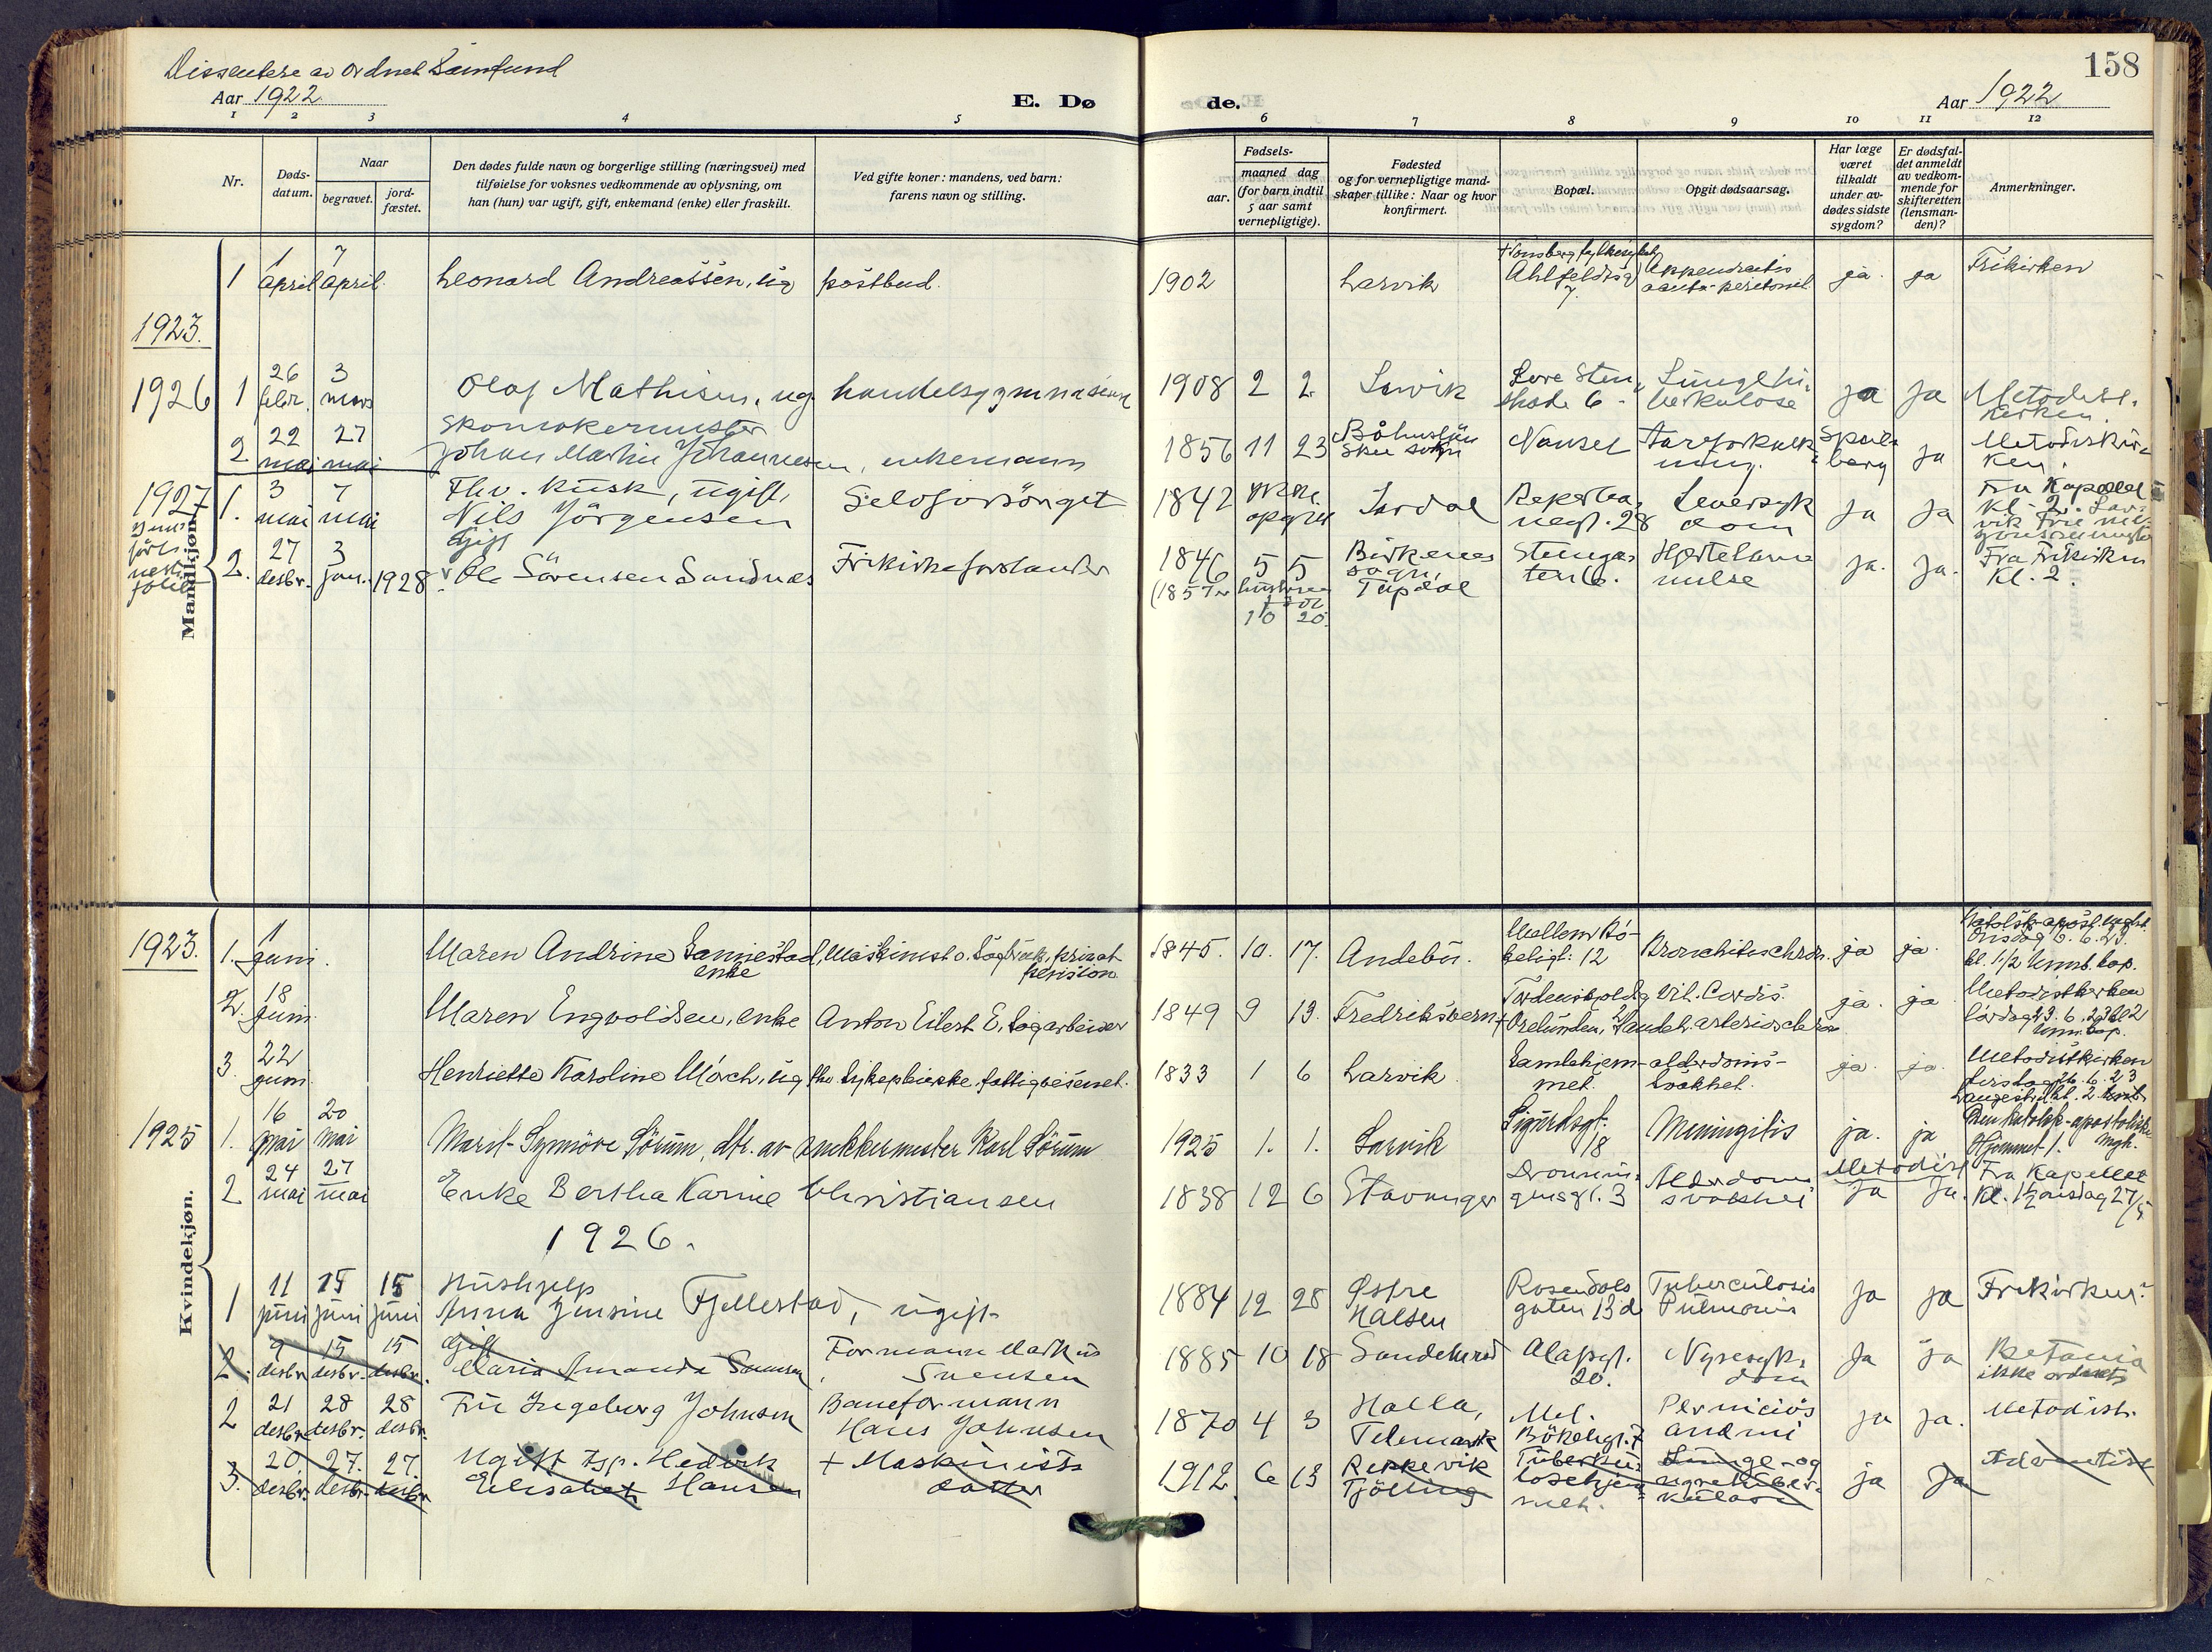 Dissentere av ordnet Samfund
158
Aar 1922
E. Døde.
Aar 1922
1 2 3 4 5 6 7 8 9 10 11 12
Nr.
Døds-datum.
Naar
begravet.
jord-fæstet.
Den dødes fulde navn og borgerlige stilling (næringsvei) med
tilføielse for voksnes vedkommende av oplysning, om
han (hun) var ugift, gift, enkemand (enke) eller fraskilt.
Ved gifte koner: mandens, ved barn:
farens navn og stilling.
Fødsels-
aar.
maaned dag
(for barn indtil
5 aar samt
vernepligtige).
Fødested
og for vernepligtige mand-
skaper tillike: Naar og hvor
konfirmert.
Bopæl.
Opgit dødsaarsag.
Har læge
været
tilkaldt
under av-
dødes sidste
sygdom?
Er dødsfal-
det anmeldt
av vedkom-
mende for
skifteretten
(lensman-
den)?
Anmerkninger.
Mandkjøn.
1 1 april 7 april Leonard Andreassen, ug postbud. 1902 Larvik Ahlfeldtsg 7. Appendicitis ja ja Frikirken
1923.
1926 1 26 febr. 3 mars Olaf Mathisen, ug handelsgymnasiast 1908 2 2 Larvik Sten 6 Lungetuberkulose ja ja Metodistkirken
2 22 mai 27 mai Skomakermester
Johan Martin Johannesen, enkemann 1856 11 23 Båhuslän sogn Nanset ja Metodistkirken.
1927 1. 3 mai 7 mai Fhv. kusk, ugift,
Nils Jörgensen Selvforsörget 1842 Lardal 28 Leversykdom ja ja Fra Kapellet kl. 2.
2. 27 desbr. 3 jan. 1928 Gift
Ole Sörensen Sandnes Frikirkeforstander 1846 5 5 Birkenes sogn, Tapdal Steingaten 6. Hjertelammelse ja. ja. Fra Frikirken kl. 2.
10 20
Kvindekjøn.
1923. 1. 1 juni. Maren Andrine enke, Maskinist privat pension 1845. 10. 17. Andebu. 12 Bronchitis chron. ja ja. kl. 1/2
2. 18 juni. Maren Engvoldsen, enke Anton Eilert E. Sagarbeider 1849 9 13. Fredriksvern Vit. Cordis. ja. ja Metodistkirken lördag 23.6.23
3. 22 juni. Henriette Karoline Mörch, ug fhv. Sykepleierske, fattigvesenet. 1833 1 6 Larvik Gamlehjemmet. alderdoms-svakhet. ja. ja. Metodistkirken tirsdag 26.6.23
1925 1. 16 mai 20 mai Marit-Synnöve Sörum, dtr. av snekkermester Karl Sörum 1925 1. 1. Larvik Sigurdsgt. 18 Meningitis ja. ja Den katolsk-apostoliske mgh. Hjemmet 1.
2 24 mai 27 mai Enke Bertha Karine Christiansen 1838 12 6 Stavanger Dronningensgt. 3 Alderdomssvakhet Metodist ja ja. Fra Kapellet kl. 1½ onsdag 27/5
1926.
1 11 juni 15 juni 15 juni Hushjelp
Anna Jensine Fjellestad, ugift 1884 12 28 Østre Halsen Rosendals gaten 13 d Tuberculosis Pulmonis ja ja Frikirken.
2. 9 desbr. 15 desbr. 15 desbr. Gift
Maria Amanda Svensen Formann Markus Svensen 1885 10 18 Sandeherad 20. Nyresykdom ja ja Betania ikke ordnet
2 21 desbr. 28 desbr. 28 desbr. Fru Ingeborg Johnsen Baneformann Hans Johnsen 1870 4 3 Holla, Telemark Mel. Bökeligt. 7 Perniciös anemi ja ja. Metodist.
3. 20 desbr. 27. desbr. 27. desbr. Ugift Hedvik
Elisabet Hansen + Maskinists datter 1912 6 13 Rekkevik Tjölling Tuberkulosehjemmet. Lunge- og ja ja Adventist